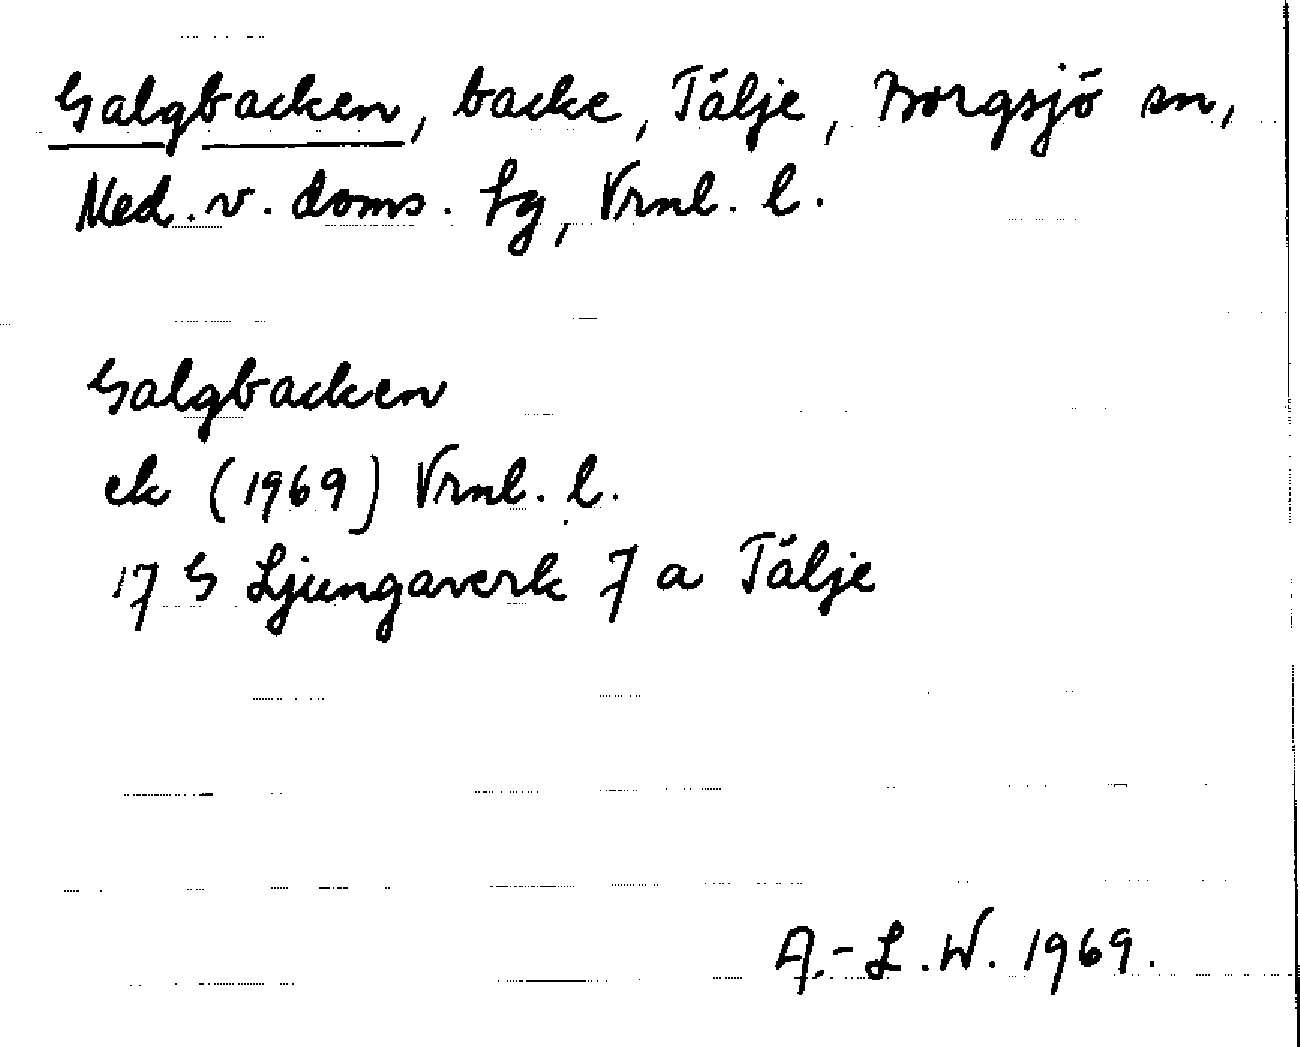 Galgbacken, backe, Tälje, Borgsjö sn,
Med. v. doms. fg, Vrnl. l.
Galgbacken
ek (1969) Vrnl. l.
17 G Ljungaverk 7 a Tälje
A.-L.W. 1969.